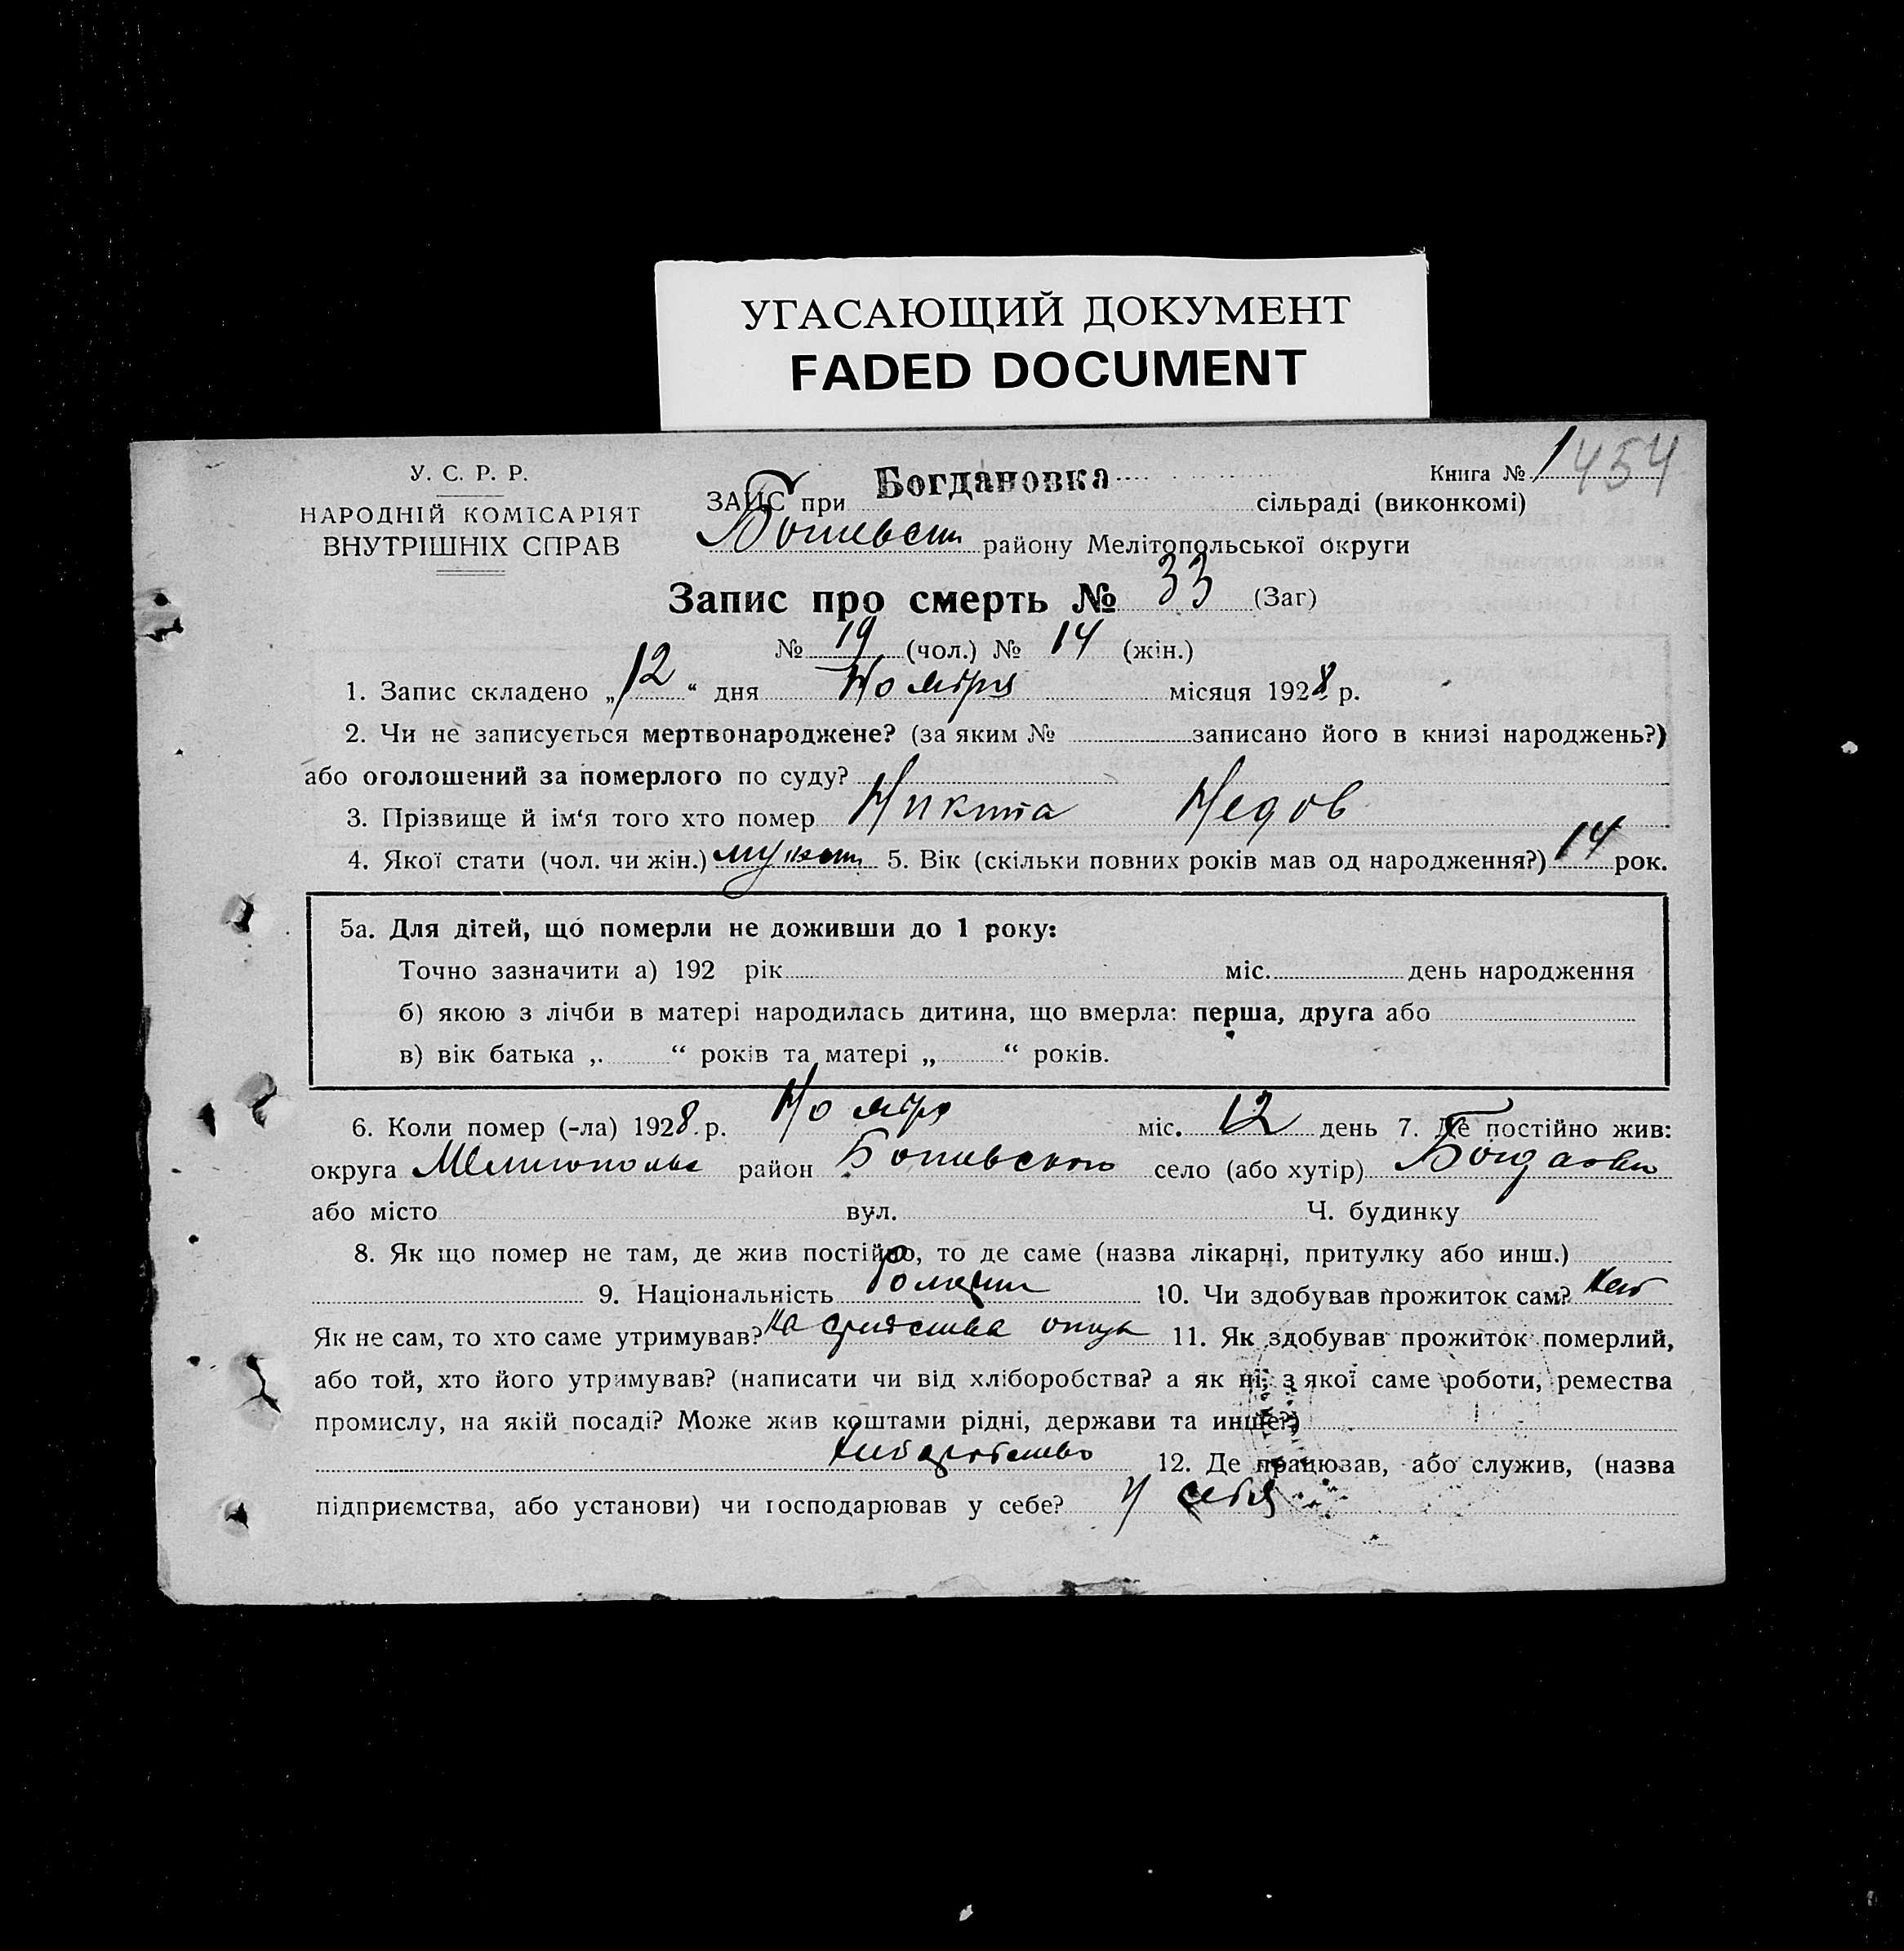 УГАСАЮЩИЙ ДОКУМЕНТ
FADED DOCUMENT
У. С. Р. Р.
НАРОДНІЙ КОМІСАРІЯТ
ВНУТРІШНІХ СПРАВ
Книга № 1 454
ЗАГС при Богдановка сільраді (виконкомі)
району Мелітопольської округи
Запис про смерть № 33 (Заг)
№ 19 (чол.) № 14 (жін.)
1. Запис складено „12“ дня Ноября місяця 1928 р.
2. Чи не записується мертвонароджене? (за яким № записано його в книзі народжень?)
або оголошений за померлого по суду?
3. Прізвище й ім‘я того хто помер Никита Недов
4. Якої стати (чол. чи жін.) 5. Вік (скільки повних років мав од народження?) 14 рок.
5а. Для дітей, що померли не доживши до 1 року:
Точно зазначити а) 192 рік міс. день народження
б) якою з лічби в матері народилась дитина, що вмерла: перша, друга або
в) вік батька „ “ років та матері „ “ років.
6. Коли помер (-ла) 1928 р. Ноябр міс. 12 день 7. Де постійно жив:
округа район Ботиевского село (або хутір)
або місто вул. Ч. будинку
8. Як що помер не там, де жив постійно, то де саме (назва лікарні, притулку або инш.)
9. Національність 10. Чи здобував прожиток сам?
Як не сам, то хто саме утримував? 11. Як здобував прожиток померлий,
або той, хто його утримував? (написати чи від хліборобства? а як ні, з якої саме роботи, ремества
промислу, на якій посаді? Може жив коштами рідні, держави та инше?)
12. Де працював, або служив, (назва
підприємства, або установи) чи господарював у себе? У себя